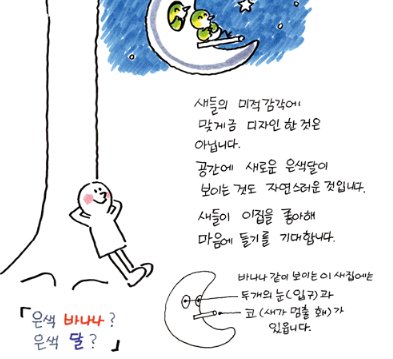 새들의 미적감각에
맞게끔 디자인한 것은
아닙니다.
공간에 새로운 은색달이
보이는 것도 자연스러운 것입니다.
새들이 이집을 좋아해
마음에 들기를 기대합니다.
바나나 같이 보이는 이 새집에는
두개의 눈(입구)과
코(새가 멈출 홰)가
있읍니다.
「은색 바나나?
은색 달?」